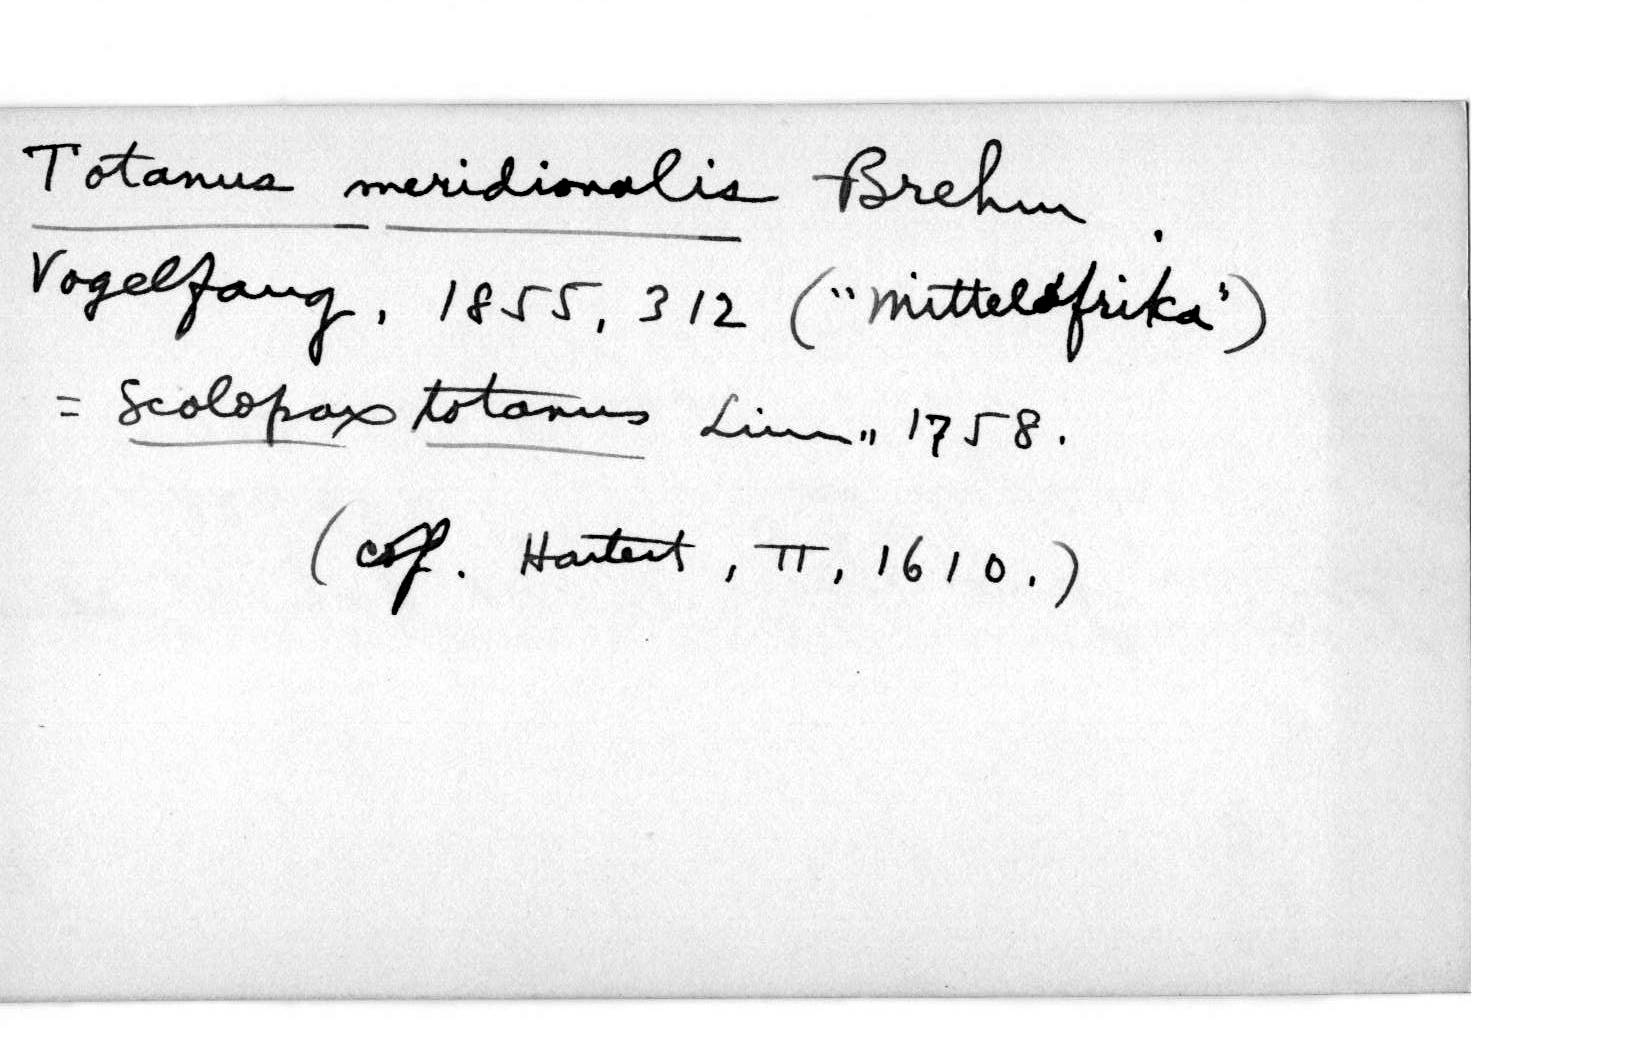 Totanus meridionalis Brehm.
Vogelfang, 1855, 312 ("Mittelafrika")
= Scolopax totanus Linn., 1758.
(cf. Hartert, II, 1610.)